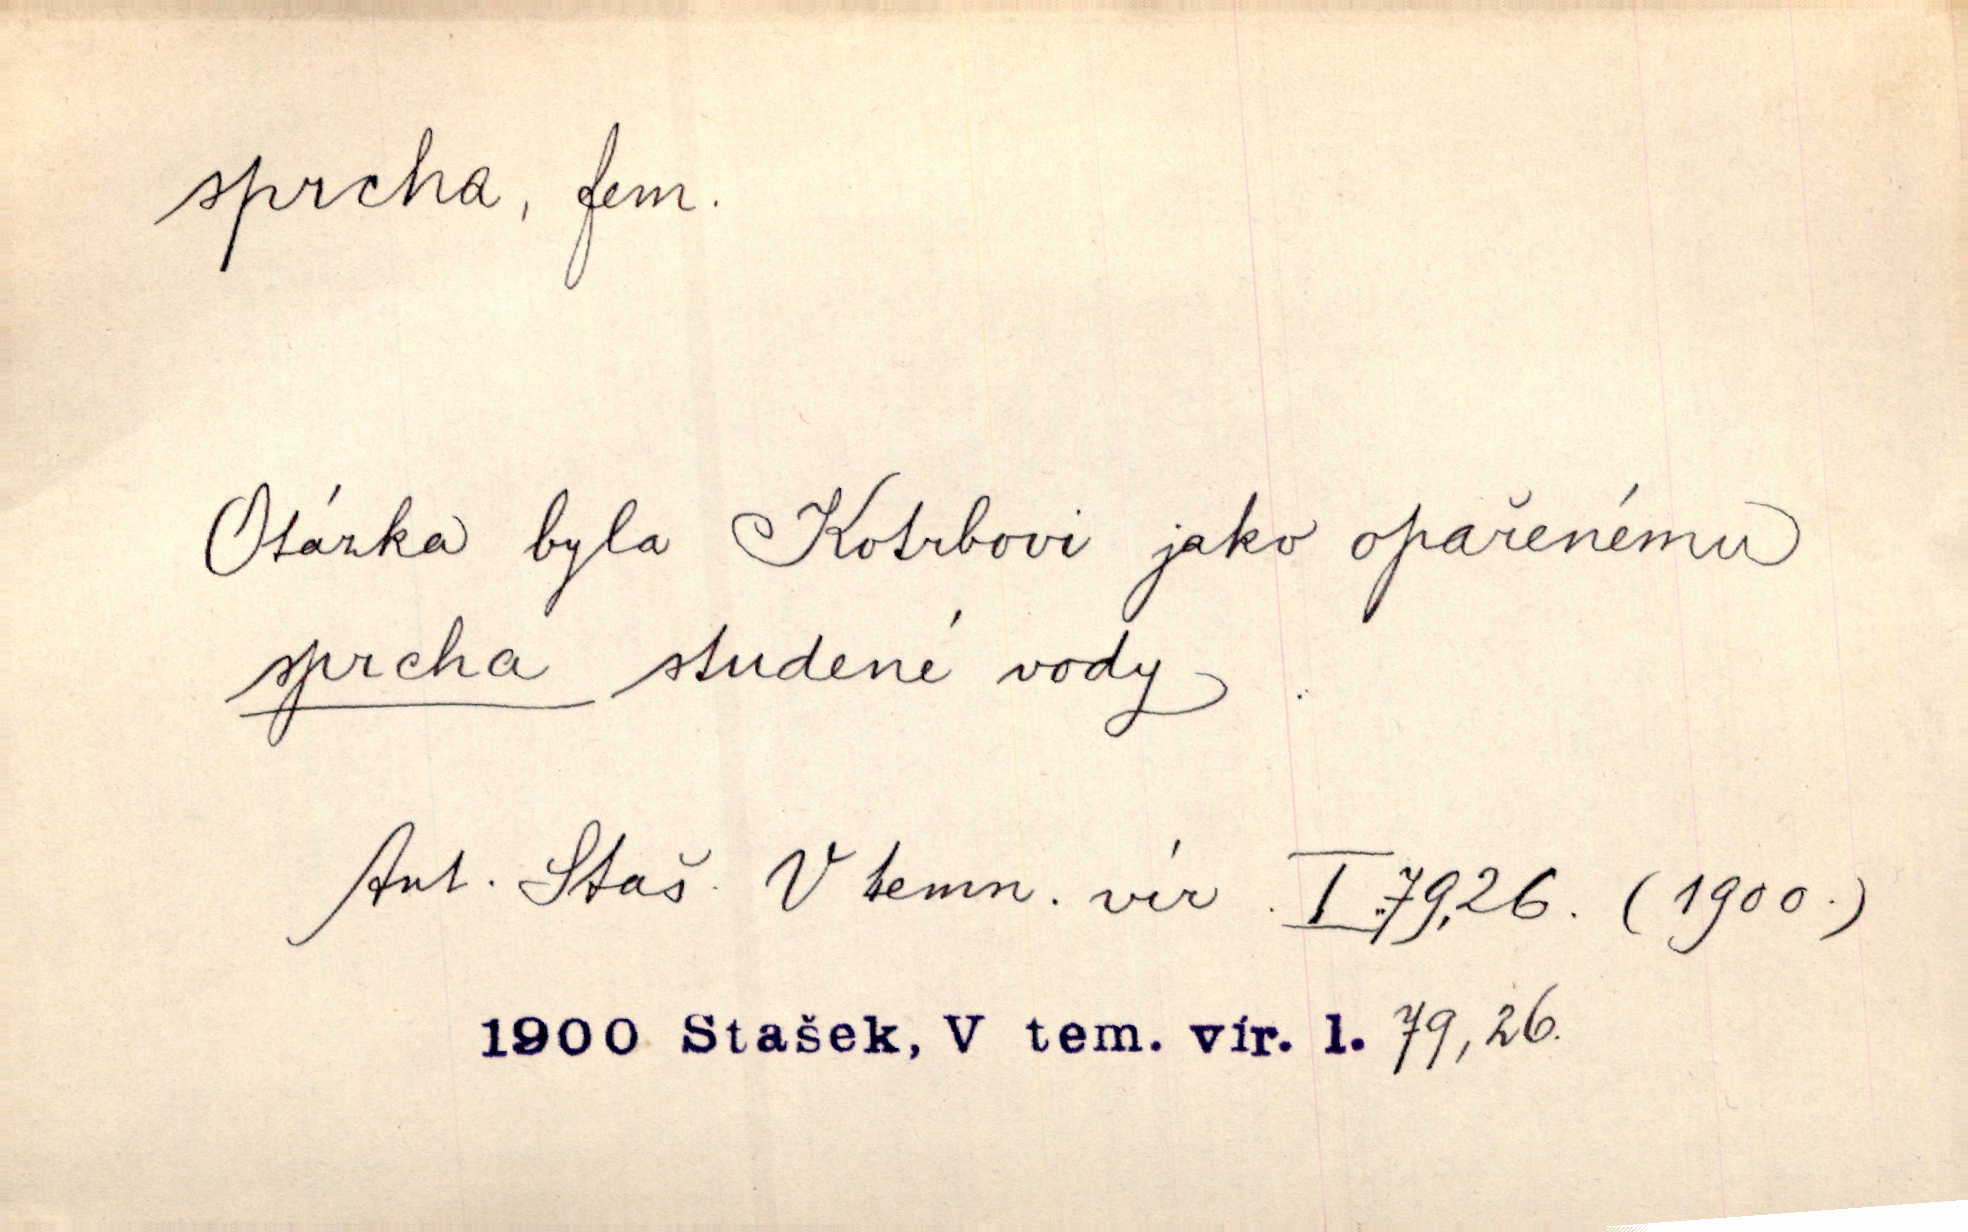 sprcha, fem.
Otázka byla Kotrbovi jako opařenému
sprcha studené vody.
Ant. Staš. V temn. vír. I. 79,26. (1900.)
1900 Stašek, V tem. vír. 1. 79,26.